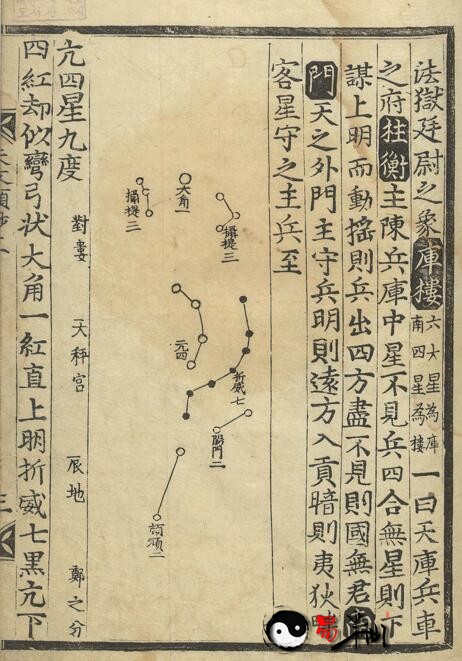 法獄廷尉之象庫樓六大星為庫南四星為樓一曰天庫兵車
之府柱衡主陳兵庫中星不見兵四合無星則下
謀上明而動搖則兵出四方盡不見則國無君南
門天之外門主守兵明則遠方入貢暗則夷狄
客星守之主兵至
攝提三
大角一
攝提三
亢四
折威七
陽門二
頓頑二
亢四星九度 對婁 天秤宮 辰地 鄭之分
四紅却似彎弓状大角一紅直上明折威七黑亢下